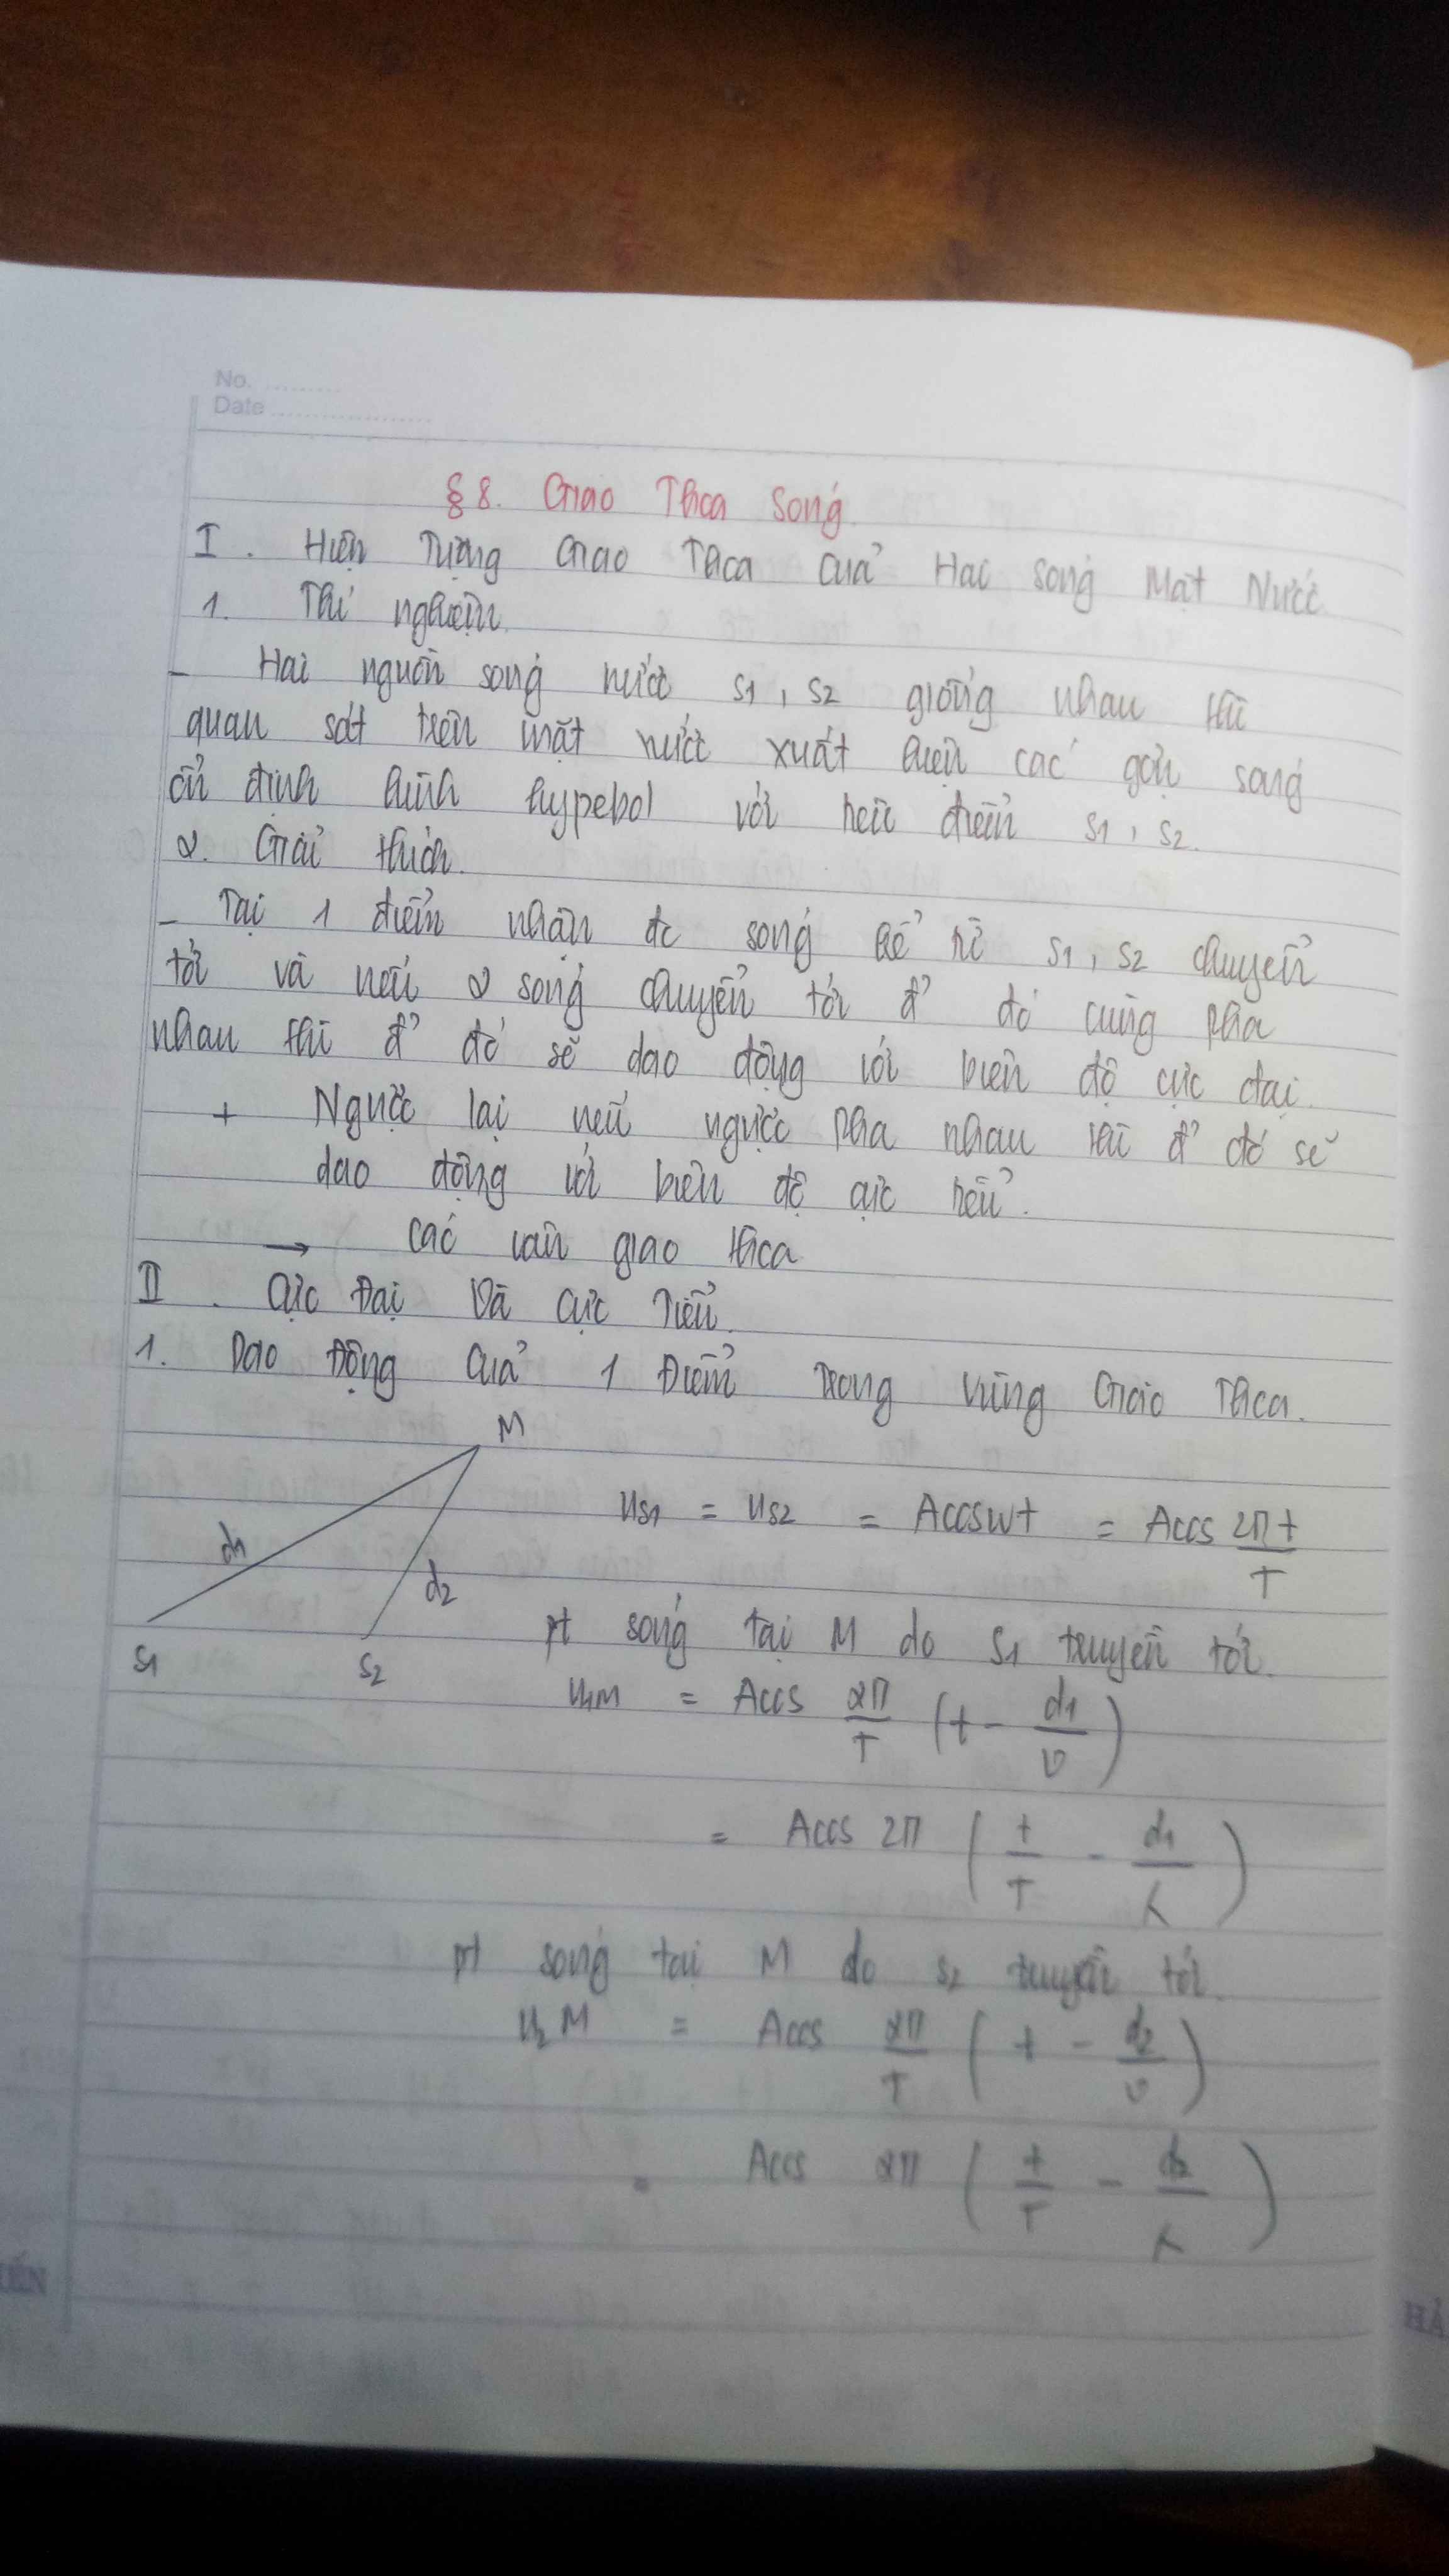 No. ..........
Date ....................
§ 8. Giao Thoa Sóng
I. Hiện Tượng Giao Thoa Của Hai Sóng Mặt Nước
1. Thí nghiệm.
– Hai nguồn sóng nước S1, S2 giống nhau thì
quan sát trên mặt nước xuất hiện các gợn sóng
ổn định hình hypebol với tiêu điểm S1, S2.
2. Giải thích.
– Tại 1 điểm nhận đc sóng kể từ S1, S2 chuyển
tới và nếu 2 sóng chuyển tới đ' đó cùng pha
nhau thì đ' đó sẽ dao động với biên độ cực đại.
+ Ngược lại nếu ngược pha nhau thì đ' đó sẽ
dao động với biên độ cực tiểu.
→ các vân giao thoa
II. Cực Đại Và Cực Tiểu.
1. Dao Động Của 1 Điểm Trong Vùng Giao Thoa.
M
uS1 = uS2 = Acosωt = Acos 2πt/T
d1
d2
S1 S2
pt sóng tại M do S1 truyền tới.
u1M = Acos 2π/T (t - d1/v)
= Acos 2π (t/T - d1/λ)
pt sóng tại M do S2 truyền tới.
u2M = Acos 2π/T (t - d2/v)
= Acos 2π (t/T - d2/λ)
IẾN
HẢ